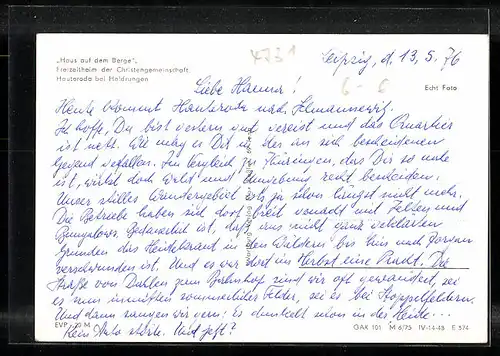 „Haus auf dem Berge",
Freizeitheim der Christengemeinschaft
Hauteroda bei Heldrungen
4731
Leipzig, d. 13.5.76
6-6
Echt Foto
Liebe Hanna!
Heute kommt Hauteroda nach
Ich hoffe, Du bist gestern gut verreist und das Quartier
ist nett. Wie mag es Dir in der an sich bescheidenen
Gegend gefallen. Im Vergleich zu Thüringen, das Dir so nahe
ist, wirkt doch Wald und Umgebung recht bescheiden.
Unser stilles Wandergebiet ist's ja schon längst nicht mehr.
Die Betriebe haben sich dort breit gemacht mit Zelten und
Bungalows. Bedauerlich ist, daß aus nicht ganz geklärten
Gründen das Heidekraut in den Wäldern bis hin nach
verschwunden ist. Und es war dort im Herbst eine Pracht. Die
Straße von Dahlen zum Bahnhof sind wir oft gewandert, sei
es nun inmitten sommerlicher Felder, sei es bei Stoppelfeldern.
Und dann sangen wir gern: Es dunkelt schon in der Heide...
Kein Auto störte. Und jetzt?
EVP M
GAK 101 M 6/73 IV-14-48 E 574